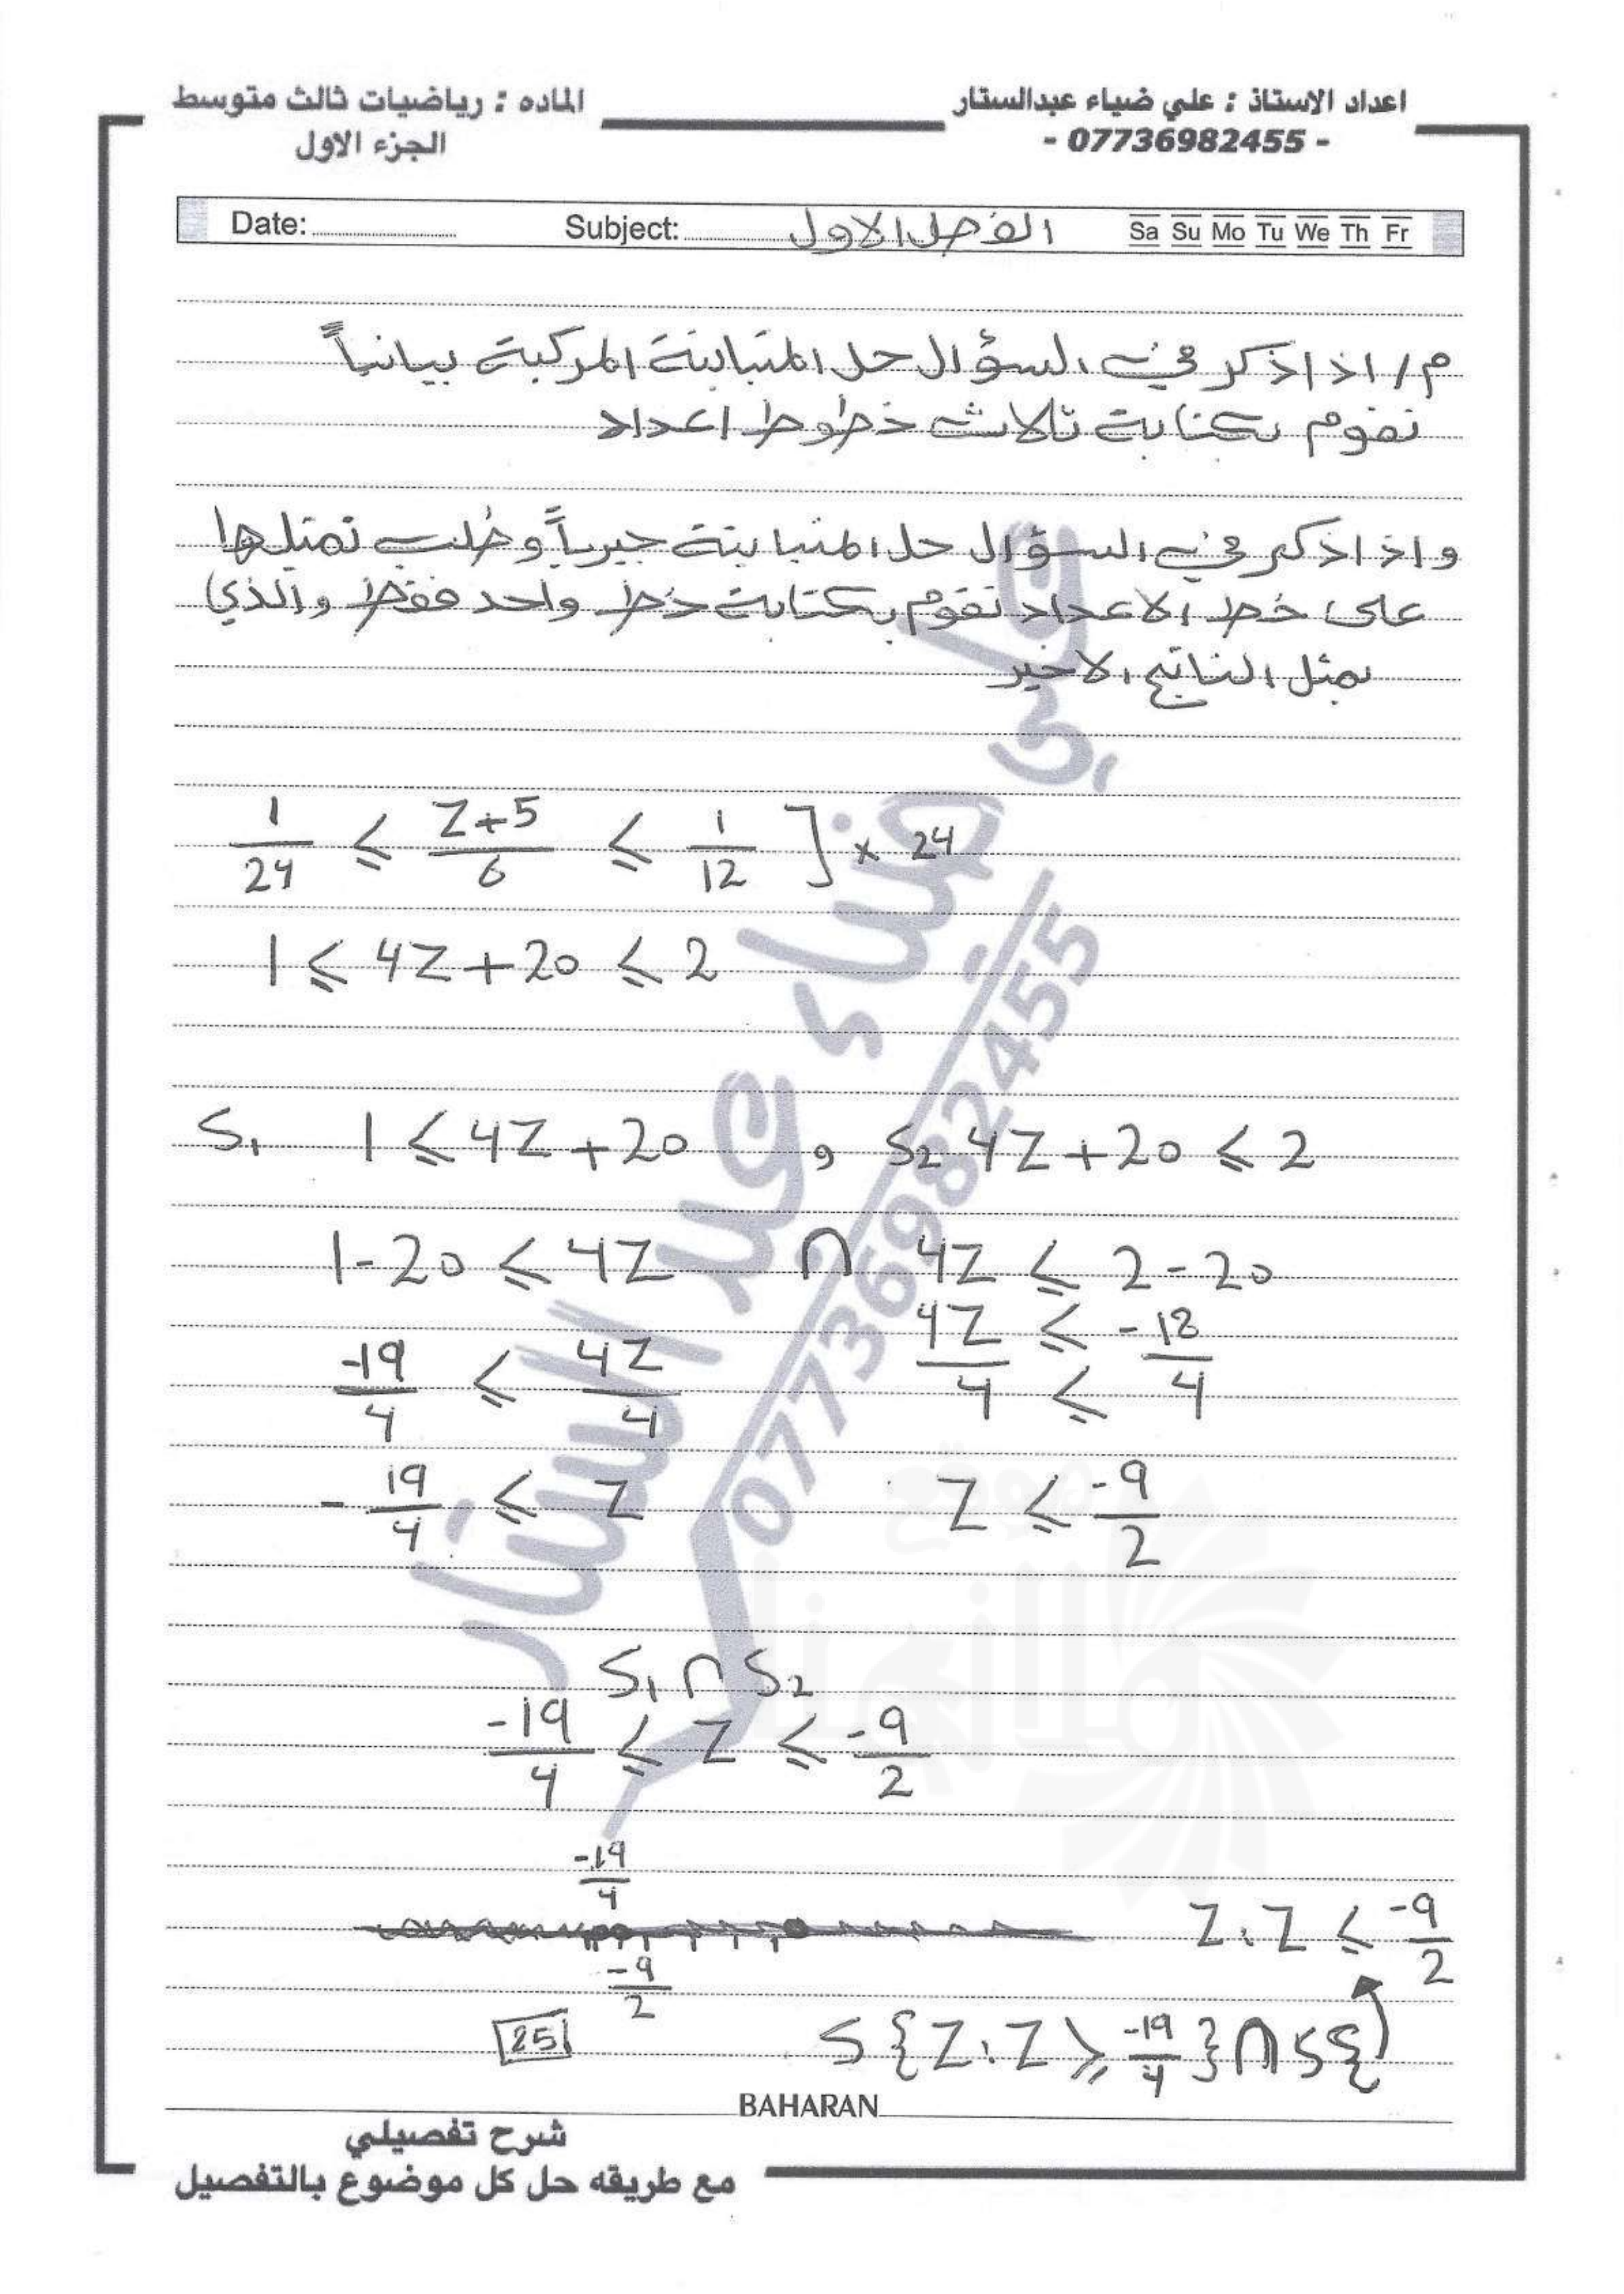 اعداد الاستاذ : علي ضياء عبدالستار
- 07736982455 -
الماده : رياضيات ثالث متوسط
الجزء الاول
Date: Subject: الفصل الاول Sa Su Mo Tu We Th Fr
م/ اذا ذكر في السؤال حل المتباينة المركبة بيانياً
نقوم بكتابة ثلاث خطوط اعداد
واذا ذكر في السؤال حل المتباينة جبرياً وطلب تمثيلها
على خط الاعداد نقوم بكتابة خط واحد فقط والذي
يمثل الناتج الاخير
1/24 ≤ Z+5/6 ≤ 1/12 ] × 24
1 ≤ 4Z + 20 ≤ 2
S₁ 1 ≤ 4Z + 20 , S₂ 4Z + 20 ≤ 2
1 - 20 ≤ 4Z ∩ 4Z ≤ 2 - 20
-19/4 ≤ 4Z/4 4Z/4 ≤ -18/4
≤
- 19/4 ≤ Z Z ≤ -9/2
S₁ ∩ S₂
-19/4 ≤ Z ≤ -9/2
-19/4
-9/2
Z : Z ≤ -9/2
S { Z : Z ≥ -19/4 } ∩ S { }
25
BAHARAN
شرح تفصيلي
مع طريقه حل كل موضوع بالتفصيل
علي ضياء عبد الستار
07736982455